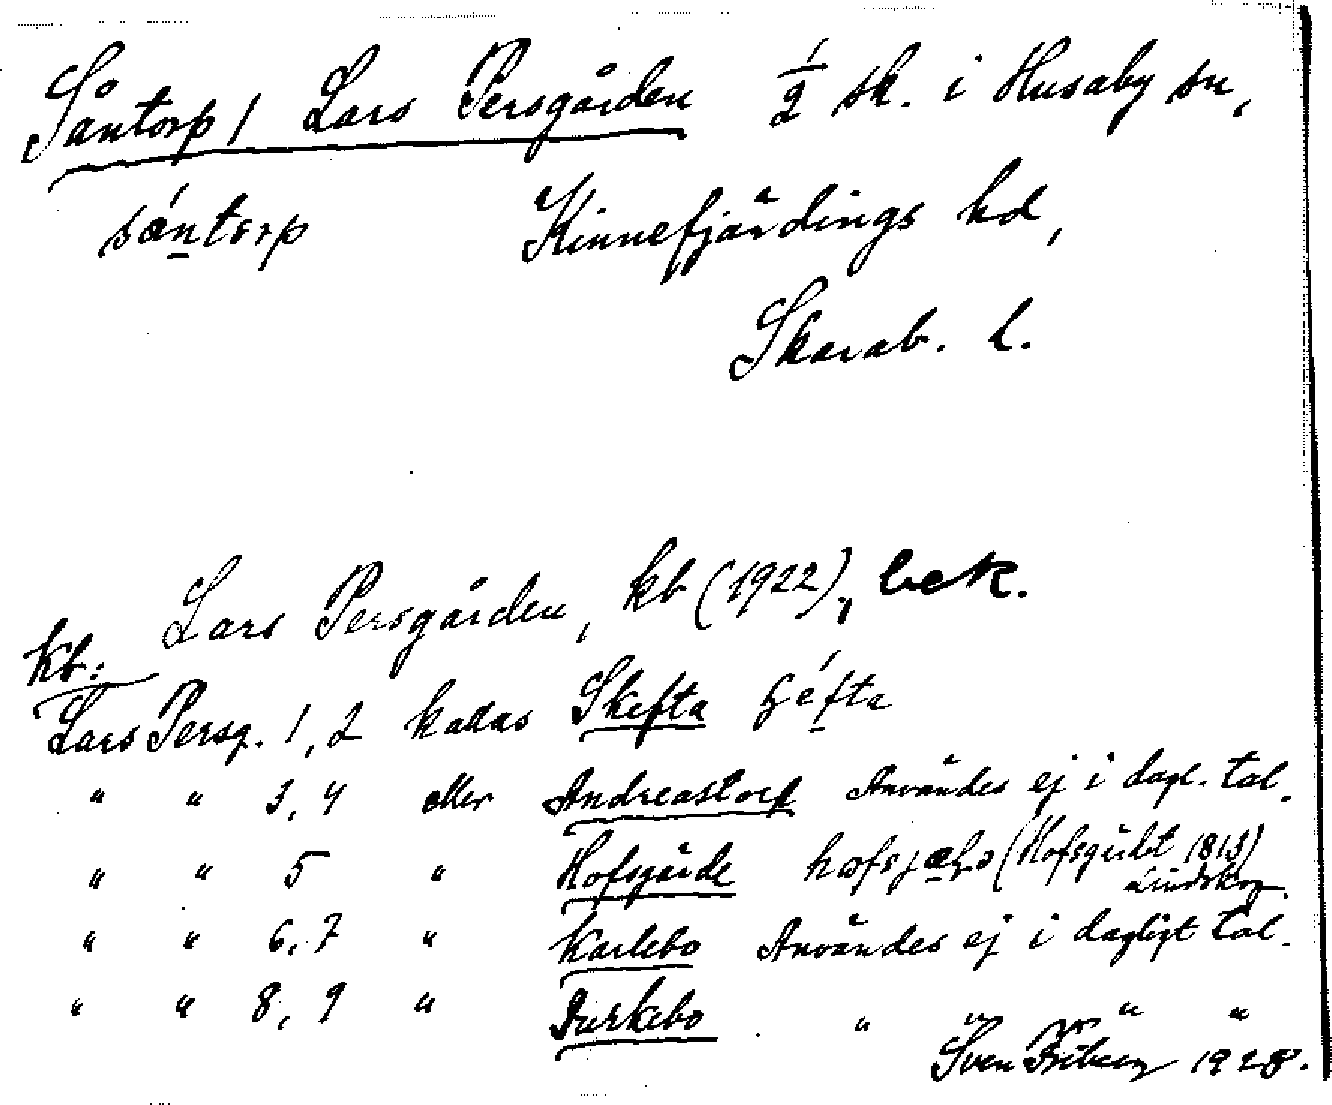 Såntorp, Lars Persgården 1/2 sk. i Husaby sn,
såntorp Kinnefjärdings hd,
Skarab. l.
Lars Persgården, kb (1922), bek.
kb:
Lars Persg. 1, 2 kallas Skefta
" " 3, 4 eller Andreastorp Användes ej i dagl. tal.
" " 5 " Hofsgärde (Hofsgiibt 1813)
Lindskog.
" " 6, 7 " Karlebo Användes ej i dagligt tal.
" " 8, 9 " Durkebo " " " "
Sven Friberg 1928.